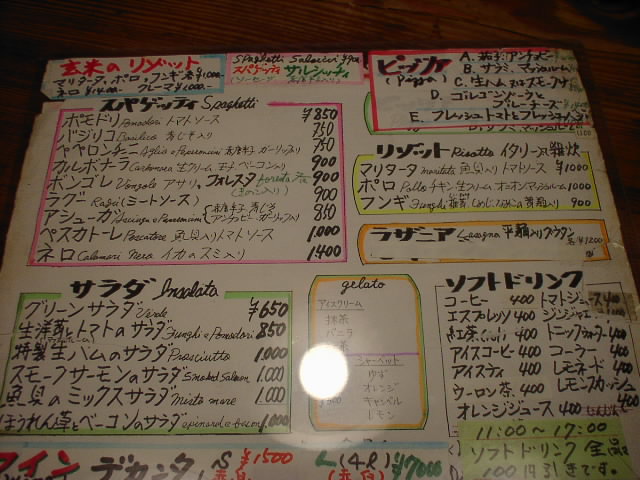 玄米のリゾット
マリタータ、ポロ、フンギ 各¥1000-
ネロ ¥1400- クレーマ ¥1000-
Spaghetti Salsicci ¥900
スパゲッティ サルシッチィ
ピッツァ
(Pizza)
A. 茄子、アンチョビー
B. サラミ、マッシュルーム
C. 生ハム又はスモークサ
D. ゴルゴンゾーラと
ブルーチーズ
E. フレッシュトマトとフレッシュ
スパゲッティ Spaghetti
ポモドリ Pomodori トマトソース ¥850
バジリコ Basilico 青じそ入り 750
ペペロンチニ Aglio e Peperoncini 唐辛子 ガーリック入り 750
カルボナーラ Carbonara 生クリーム 玉子 ベーコン入り 900
ボンゴレ Vongole アサリ, フォレスタ Foresta 900
ラグ Ragù (ミートソース) 900
アシューガ Acciuga e Peperoncini 唐辛子 青じそ アンチョビー ガーリック入り 850
ペスカトーレ Pescatore 魚貝入りトマトソース 1,000
ネロ Calamari Nero イカのスミ入り 1,400
リゾット Risotto イタリー風雑炊
マリタータ maritata 魚貝入りトマトソース ¥1000
ポロ Pollo チキン 生クリーム オニオン マッシュルーム 1000
フンギ Funghi 椎茸, しめじ, なめこの舞茸入り 900
ラザニア Lasagna 平麺入りグラタン ¥1200
サラダ Insalata
グリーンサラダ Verde ¥650
生洋茸とトマトのサラダ Funghi e Pomodori 850
(マッシュルーム)
特製生ハムのサラダ Prosciutto 1,000
スモークサーモンのサラダ Smoked Salmon 1,000
魚貝のミックスサラダ Misto mare 1,000
ほうれん草とベーコンのサラダ spinard e bacon 1,000
gelato
アイスクリーム
抹茶
バニラ
シャーベット
ゆず
オレンジ
キャンベル
レモン
ソフトドリンク
コーヒー 400
エスプレッソ 400
紅茶 400
アイスコーヒー 400
アイスティ 400
ウーロン茶 400
オレンジジュース 400
トマトジュース 400
ジンジャエール
トニックウォーター 400
コーラー 400
レモネード 400
レモンスカッシュ
400
11:00~17:00
ソフトドリンク 全品
100円引きです。
ワイン デカンタ S ¥1500 L (4R) ¥7000